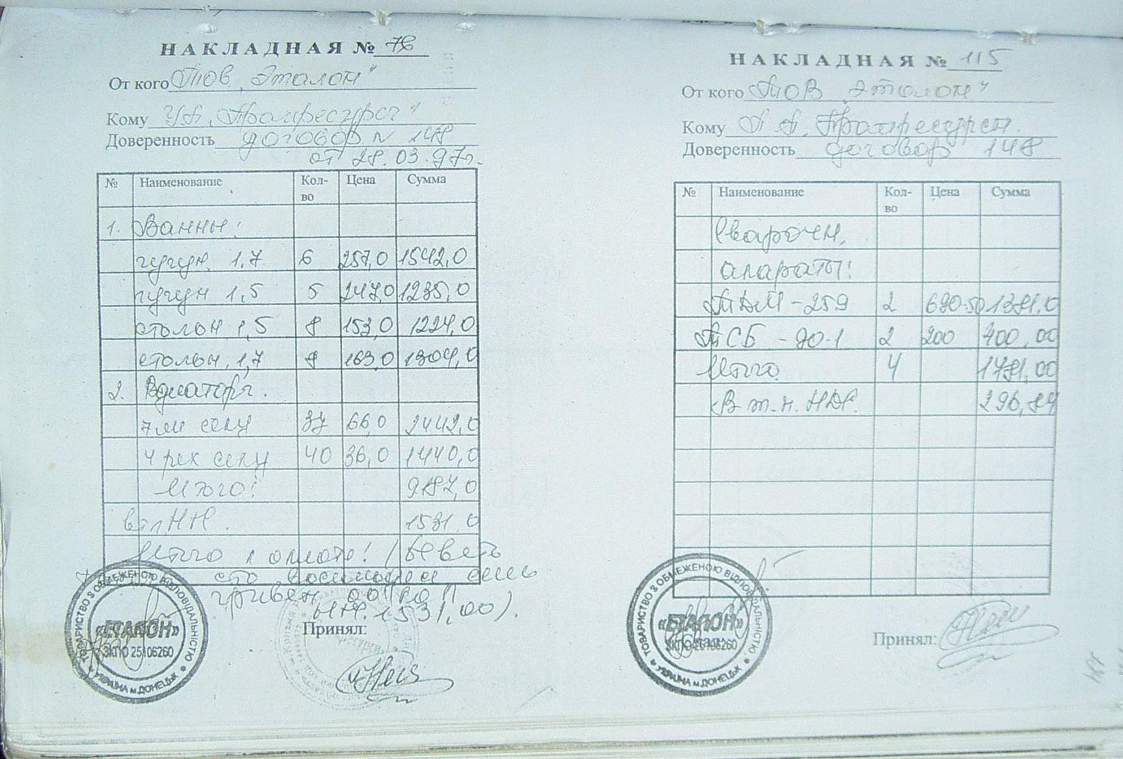 НАКЛАДНАЯ № 76
От кого ТОВ „Эталон"
Кому
Доверенность договор № 148
от 28.03.97г.
№ Наименование Кол-во Цена Сумма
1. Ванны:
чугун. 1,7 6 257,0 1542,0
чугун 1,5 5 247,0 1235,0
стальн 1,5 8 153,0 1224,0
стальн. 1,7 8 163,0 1304,0
2.
7ми секц 37 66,0 2442,0
4рех секц 40 36,0 1440,0
Итого: 9187,0
1531.0
Итого к оплате: (Девять
сто восемьдесят семь
гривен 00
1531,00).
Принял:
ТОВАРИСТВО З ОБМЕЖЕНОЮ ВІДПОВІДАЛЬНІСТЮ
«ЕТАЛОН»
ЗКПО 25106260
УКРАЇНА м.ДОНЕЦЬК
НАКЛАДНАЯ № 115
От кого ТОВ Эталон"
Кому
Доверенность договор 148
№ Наименование Кол-во Цена Сумма
Сварочн.
апараты:
2 690-50 1381,0
ТСБ - 90-1 2 200 400,00
Итого 4 1781,00
В т.ч. НДС. 296,84
Принял:
ТОВАРИСТВО З ОБМЕЖЕНОЮ ВІДПОВІДАЛЬНІСТЮ
«ЕТАЛОН»
ЗКПО 25106260
УКРАЇНА м.ДОНЕЦЬК